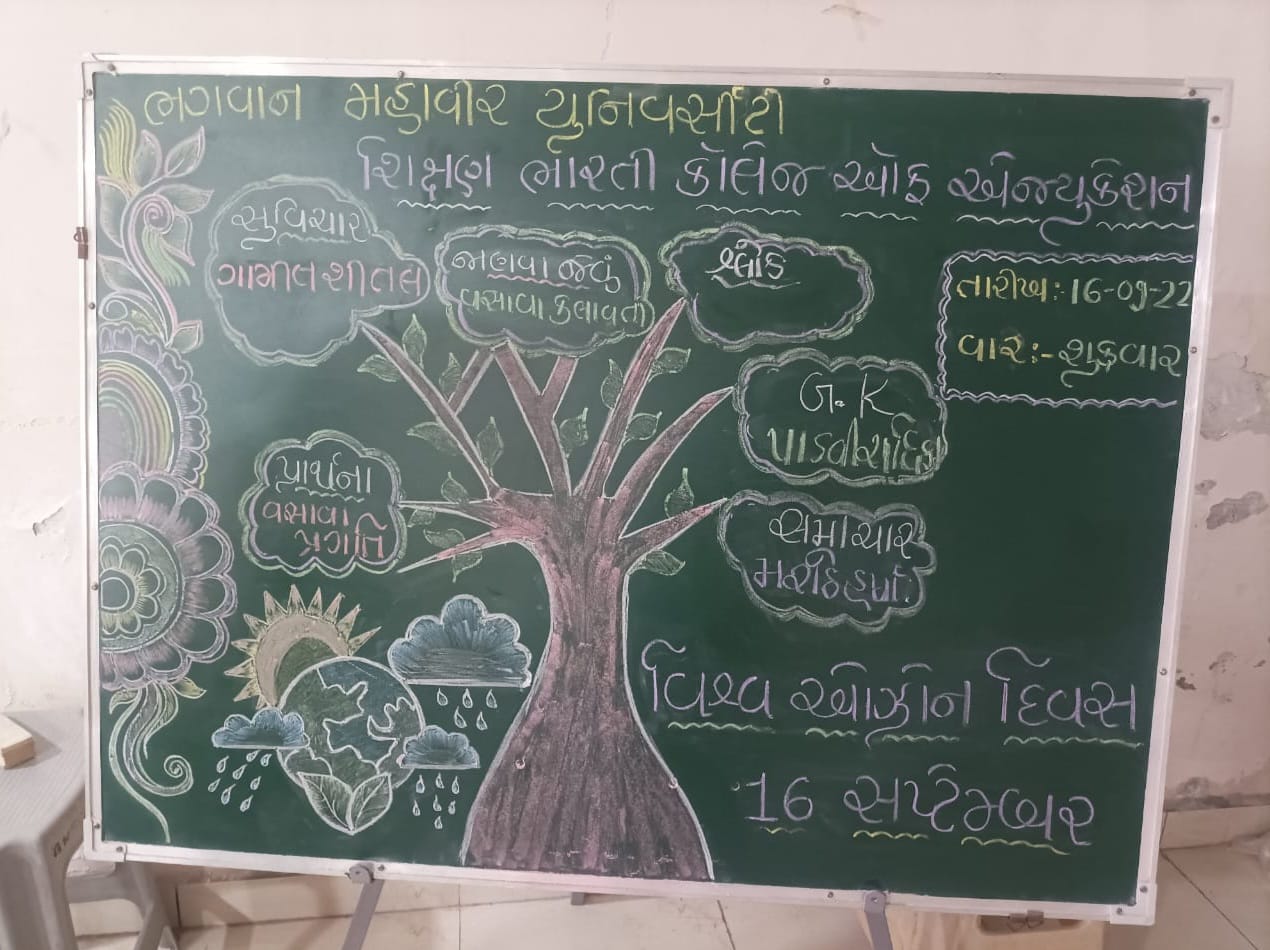 ભગવાન મહાવીર યુનિવર્સીટી
શિક્ષણ ભારતી કૉલેજ ઓફ એજ્યુકેશન
સુવિચાર
ગામીત શીતલ
જાણવા જેવું
વસાવા કલાવતી
શ્લોક
તારીખ:-16-09-22
વાર:- શુક્રવાર
G. K
પાડવી
પ્રાર્થના
વસાવા
પ્રગતિ
સમાચાર
વિશ્વ ઓઝોન દિવસ
16 સપ્ટેમ્બર